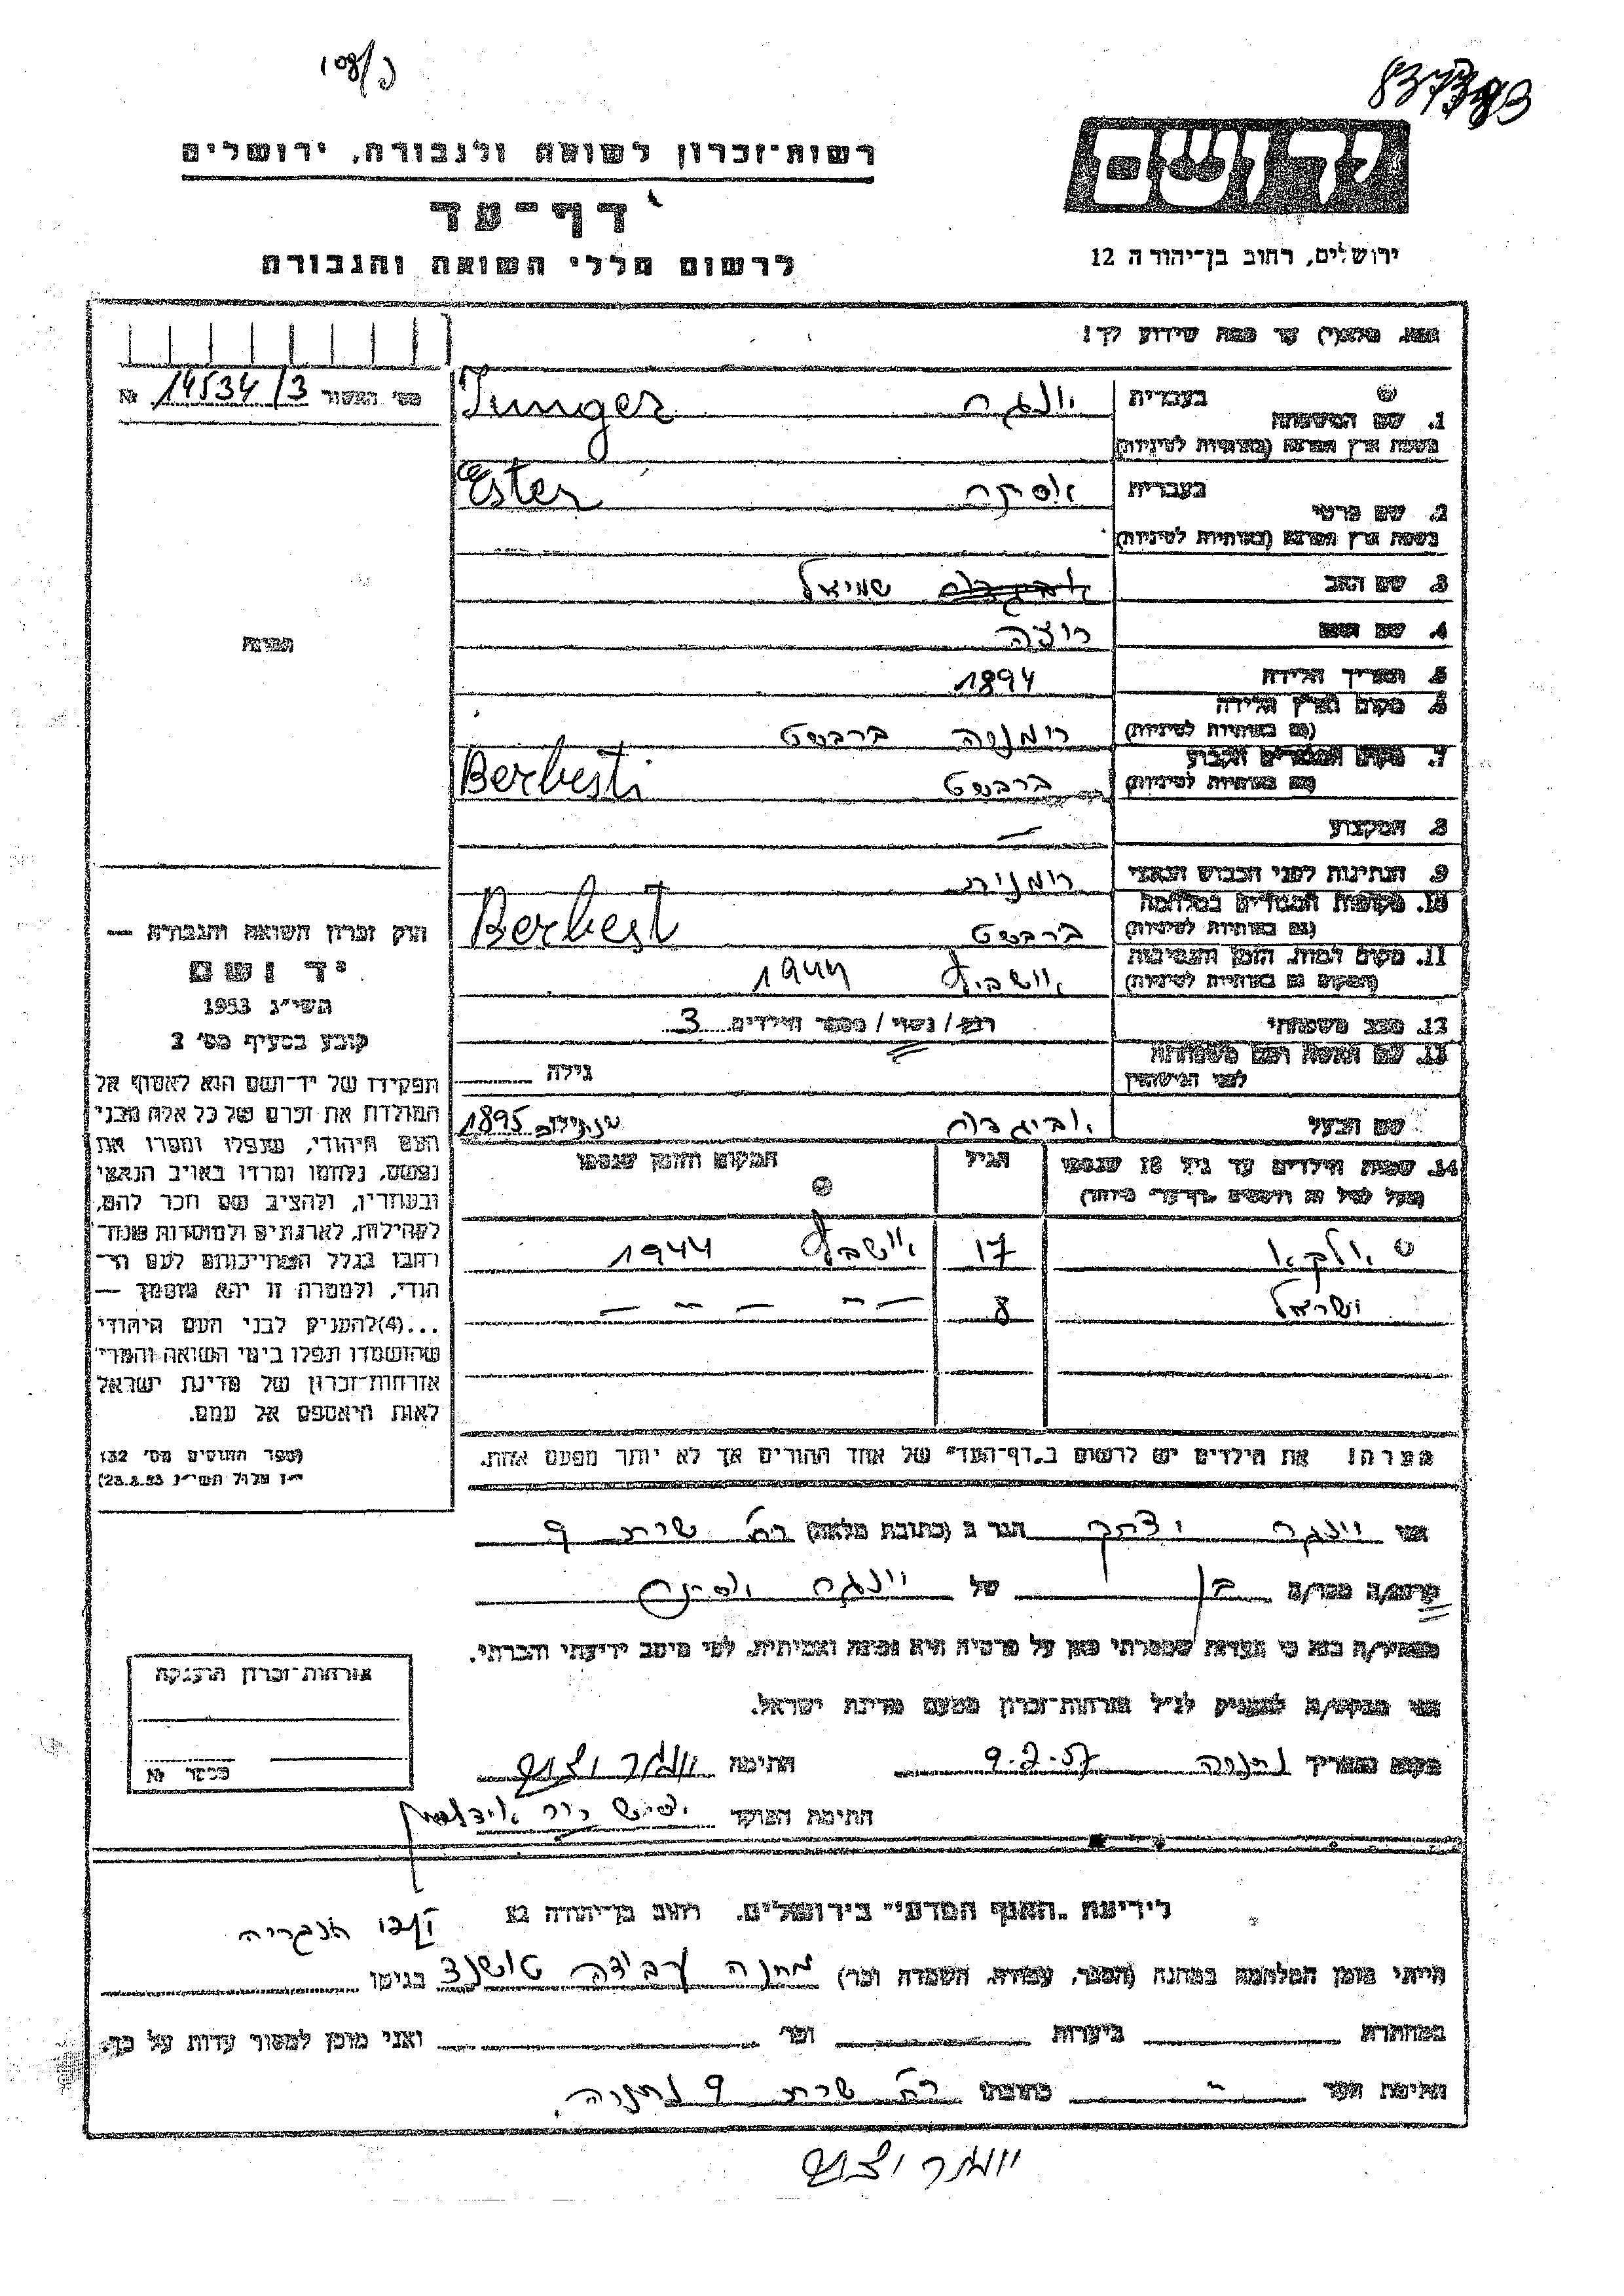 רשות־זכרון לשואה ולגבורה, ירושלים
דף־עד
לרשום חללי השואה והגבורה
יד ושם
ירושלים, רחוב בן־יהודה 12
נא, למלא עד כמה שידוע לך!
מס' האשור 14534/3 №
בעברית יונגר Iunger
1. שם המשפחה
בשפת ארץ המוצא (באותיות לטיניות)
בעברית אסתר Ester
2. שם פרטי
בשפת ארץ המוצא (באותיות לטיניות)
3. שם האב שמואל
4. שם האם רוזה
5. תאריך הלידה 1894
6. מקום וארץ הלידה
(גם באותיות לטיניות) רומניה ברבשט
7. מקום המגורים הקבוע
(גם באותיות לטיניות) ברבשט Berbesti
8. המקצוע —
9. הנתינות לפני הכבוש הנאצי רומנית
10. מקומות המגורים במלחמה
(גם באותיות לטיניות) ברבשט Berbest
11. מקום המות, הזמן והנסיבות
(המקום גם באותיות לטיניות) אושביץ 1944
12. מצב משפחתי רווק / נשוי / מספר הילדים 3
13. שם האשה ושם משפחתה
לפני הנישואין גילה
שם הבעל אביגדור 1895
14. שמות הילדים עד גיל 18 שנספו
(מעל לגיל זה רושמים "דף־עד" מיוחד)
הגיל
המקום והזמן שנספו
17 אושביץ 1944
ישראל 8 — — — — —
תמונה
חוק זכרון השואה והגבורה —
יד ושם
תשי"ג 1953
קובע בסעיף מס' 2
תפקידו של יד־ושם הוא לאסוף אל
המולדת את זכרם של כל אלה מבני
העם היהודי, שנפלו ומסרו את
נפשם, נלחמו ומרדו באויב הנאצי
ובעוזריו, ולהציב שם וזכר להם,
לקהילות, לארגונים ולמוסדות שנח־
רבו בגלל השתייכותם לעם הי־
הודי, ולמטרה זו יהא מוסמך —
...(4)להעניק לבני העם היהודי
שהושמדו ונפלו בימי השואה והמרי
אזרחות־זכרון של מדינת ישראל
לאות היאספם אל עמם.
(ספר החוקים מס' 132,
י"ז אלול תשי"ג 28.8.53)
הערה! את הילדים יש לרשום ב"דף־העד" של אחד ההורים אך לא יותר מפעם אחת.
אני יונגר יצחק הגר ב (כתובת מלאה) רח' שרת 9
קרוב/ה מכר/ה בן של יונגר אסתר
מצהיר/ה בזה כי העדות שמסרתי כאן על פרטיה היא נכונה ואמיתית, לפי מיטב ידיעתי והכרתי.
אני מבקש/ת להעניק לנ"ל אזרחות־זכרון מטעם מדינת ישראל.
מקום ותאריך נתניה 9.2.57 חתימה יונגר יצחק
חתימת הפוקד
אזרחות־זכרון הוענקה
מספר №
לידיעת "האגף המדעי" בירושלים, רחוב בן־יהודה 12
הייתי בזמן המלחמה במחנה (הסגר, עבודה, השמדה וכו') מחנה עבודה בגיטו
במחתרת ביערות וכו' ואני מוכן למסור עדות על כך.
חתימת העד כתובתו רח' שרת 9 נתניה
יונגר יצחק